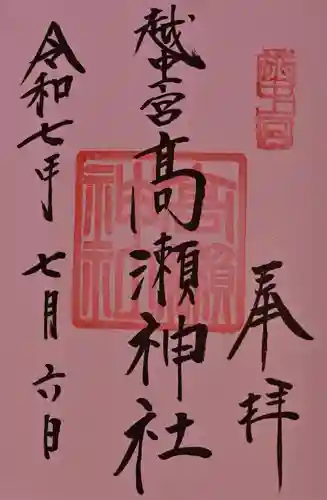 奉拝
越中一宮
高瀬神社
令和七年七月六日
高瀬神社